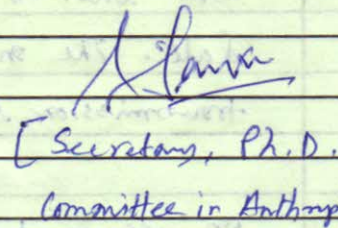 [Secretary, Ph.D.
Committee in Anthrop